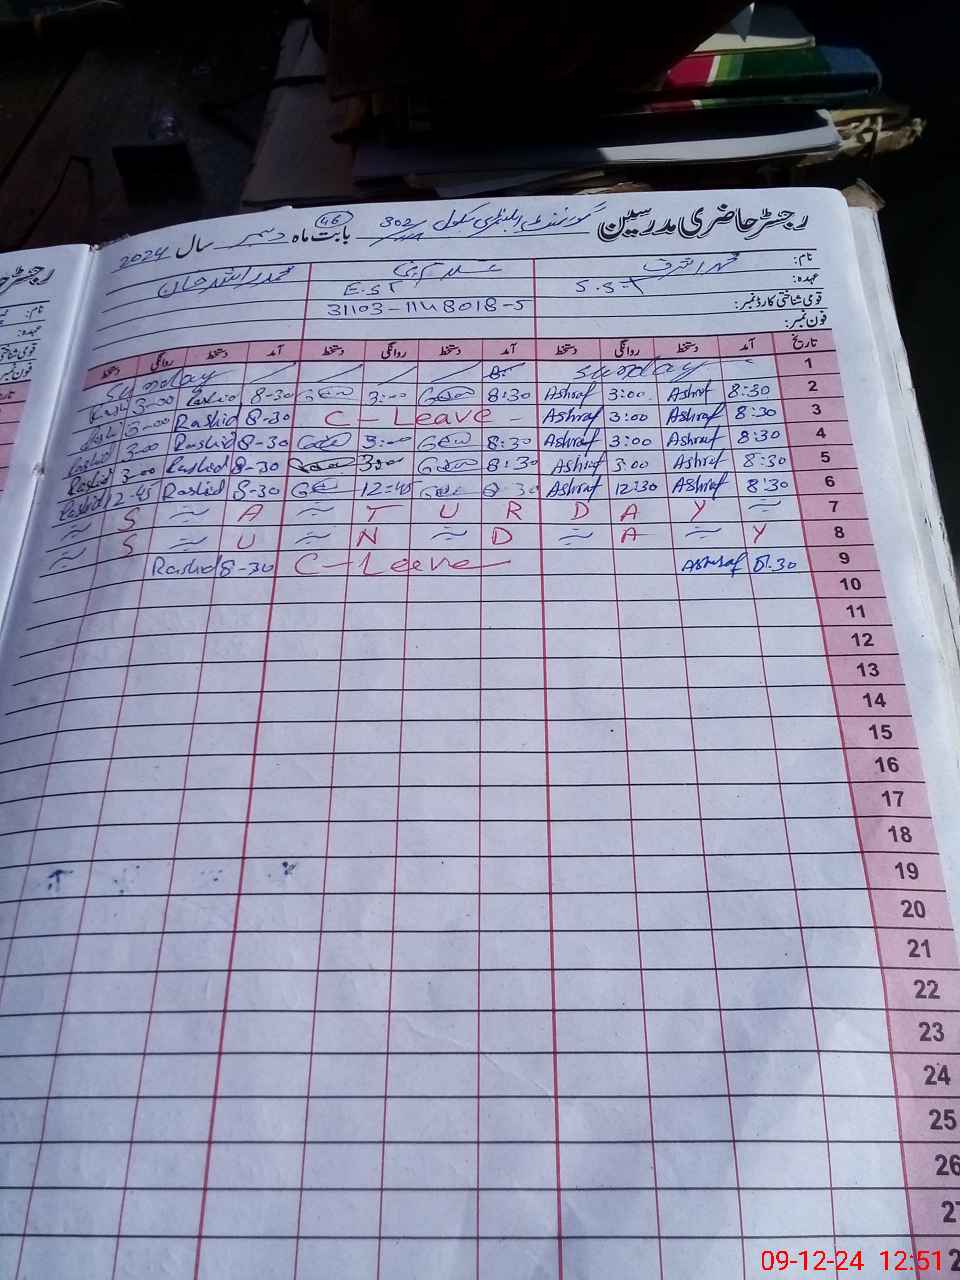 رجسٹر حاضری مدرسین گورنمنٹ ایلیمنٹری سکول 302 بابت ماہ دسمبر سال 2024
46
نام: محمد اشرف محمد راشد خان
عہدہ: S.S.T E.ST
قومی شناختی کارڈ نمبر: 31103-1148018-5
فون نمبر:
تاریخ آمد دستخط روانگی دستخط آمد دستخط روانگی دستخط آمد دستخط روانگی دستخط
1 Sunday Sunday
2 8:30 Ashraf 3:00 Ashraf 8:30 3:00 8-30 Rashid 3-00 Rashid
3 8:30 Ashraf 3:00 Ashraf C-Leave 8-30 Rashid 3-00 Rashid
4 8:30 Ashraf 3:00 Ashraf 8:30 3:00 8-30 Rashid 3-00 Rashid
5 8:30 Ashraf 3:00 Ashraf 8:30 3:00 8-30 Rashid 3-00 Rashid
6 8:30 Ashraf 12:30 Ashraf 8:30 12:45 8-30 Rashid 12-45 Rashid
7 S A T U R D A Y
8 S U N D A Y
9 8:30 Ashraf C-Leave 8-30 Rashid
10
11
12
13
14
15
16
17
18
19
20
21
22
23
24
25
26
27
09-12-24 12:51